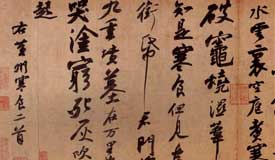 水雲裏空庖煮寒
破竈燒濕葦
知是寒食但見烏
銜帋君門深
九重墳墓在万里
哭塗窮死灰吹
起
右黃州寒食二首